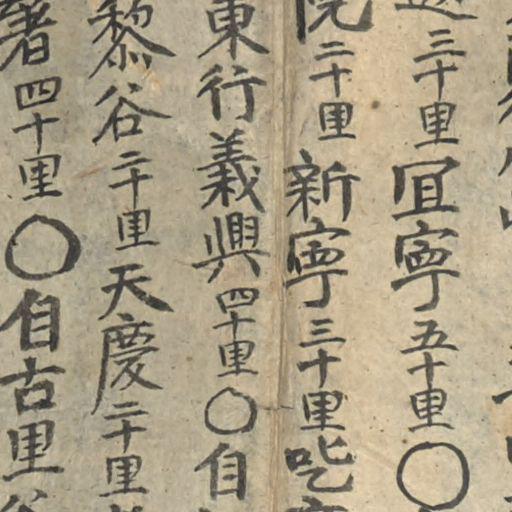 三十里冝寧五十里〇
院二十里新寧三十里
東行義興四十里〇自
黎谷二十里天慶二十里
署四十里〇自古里